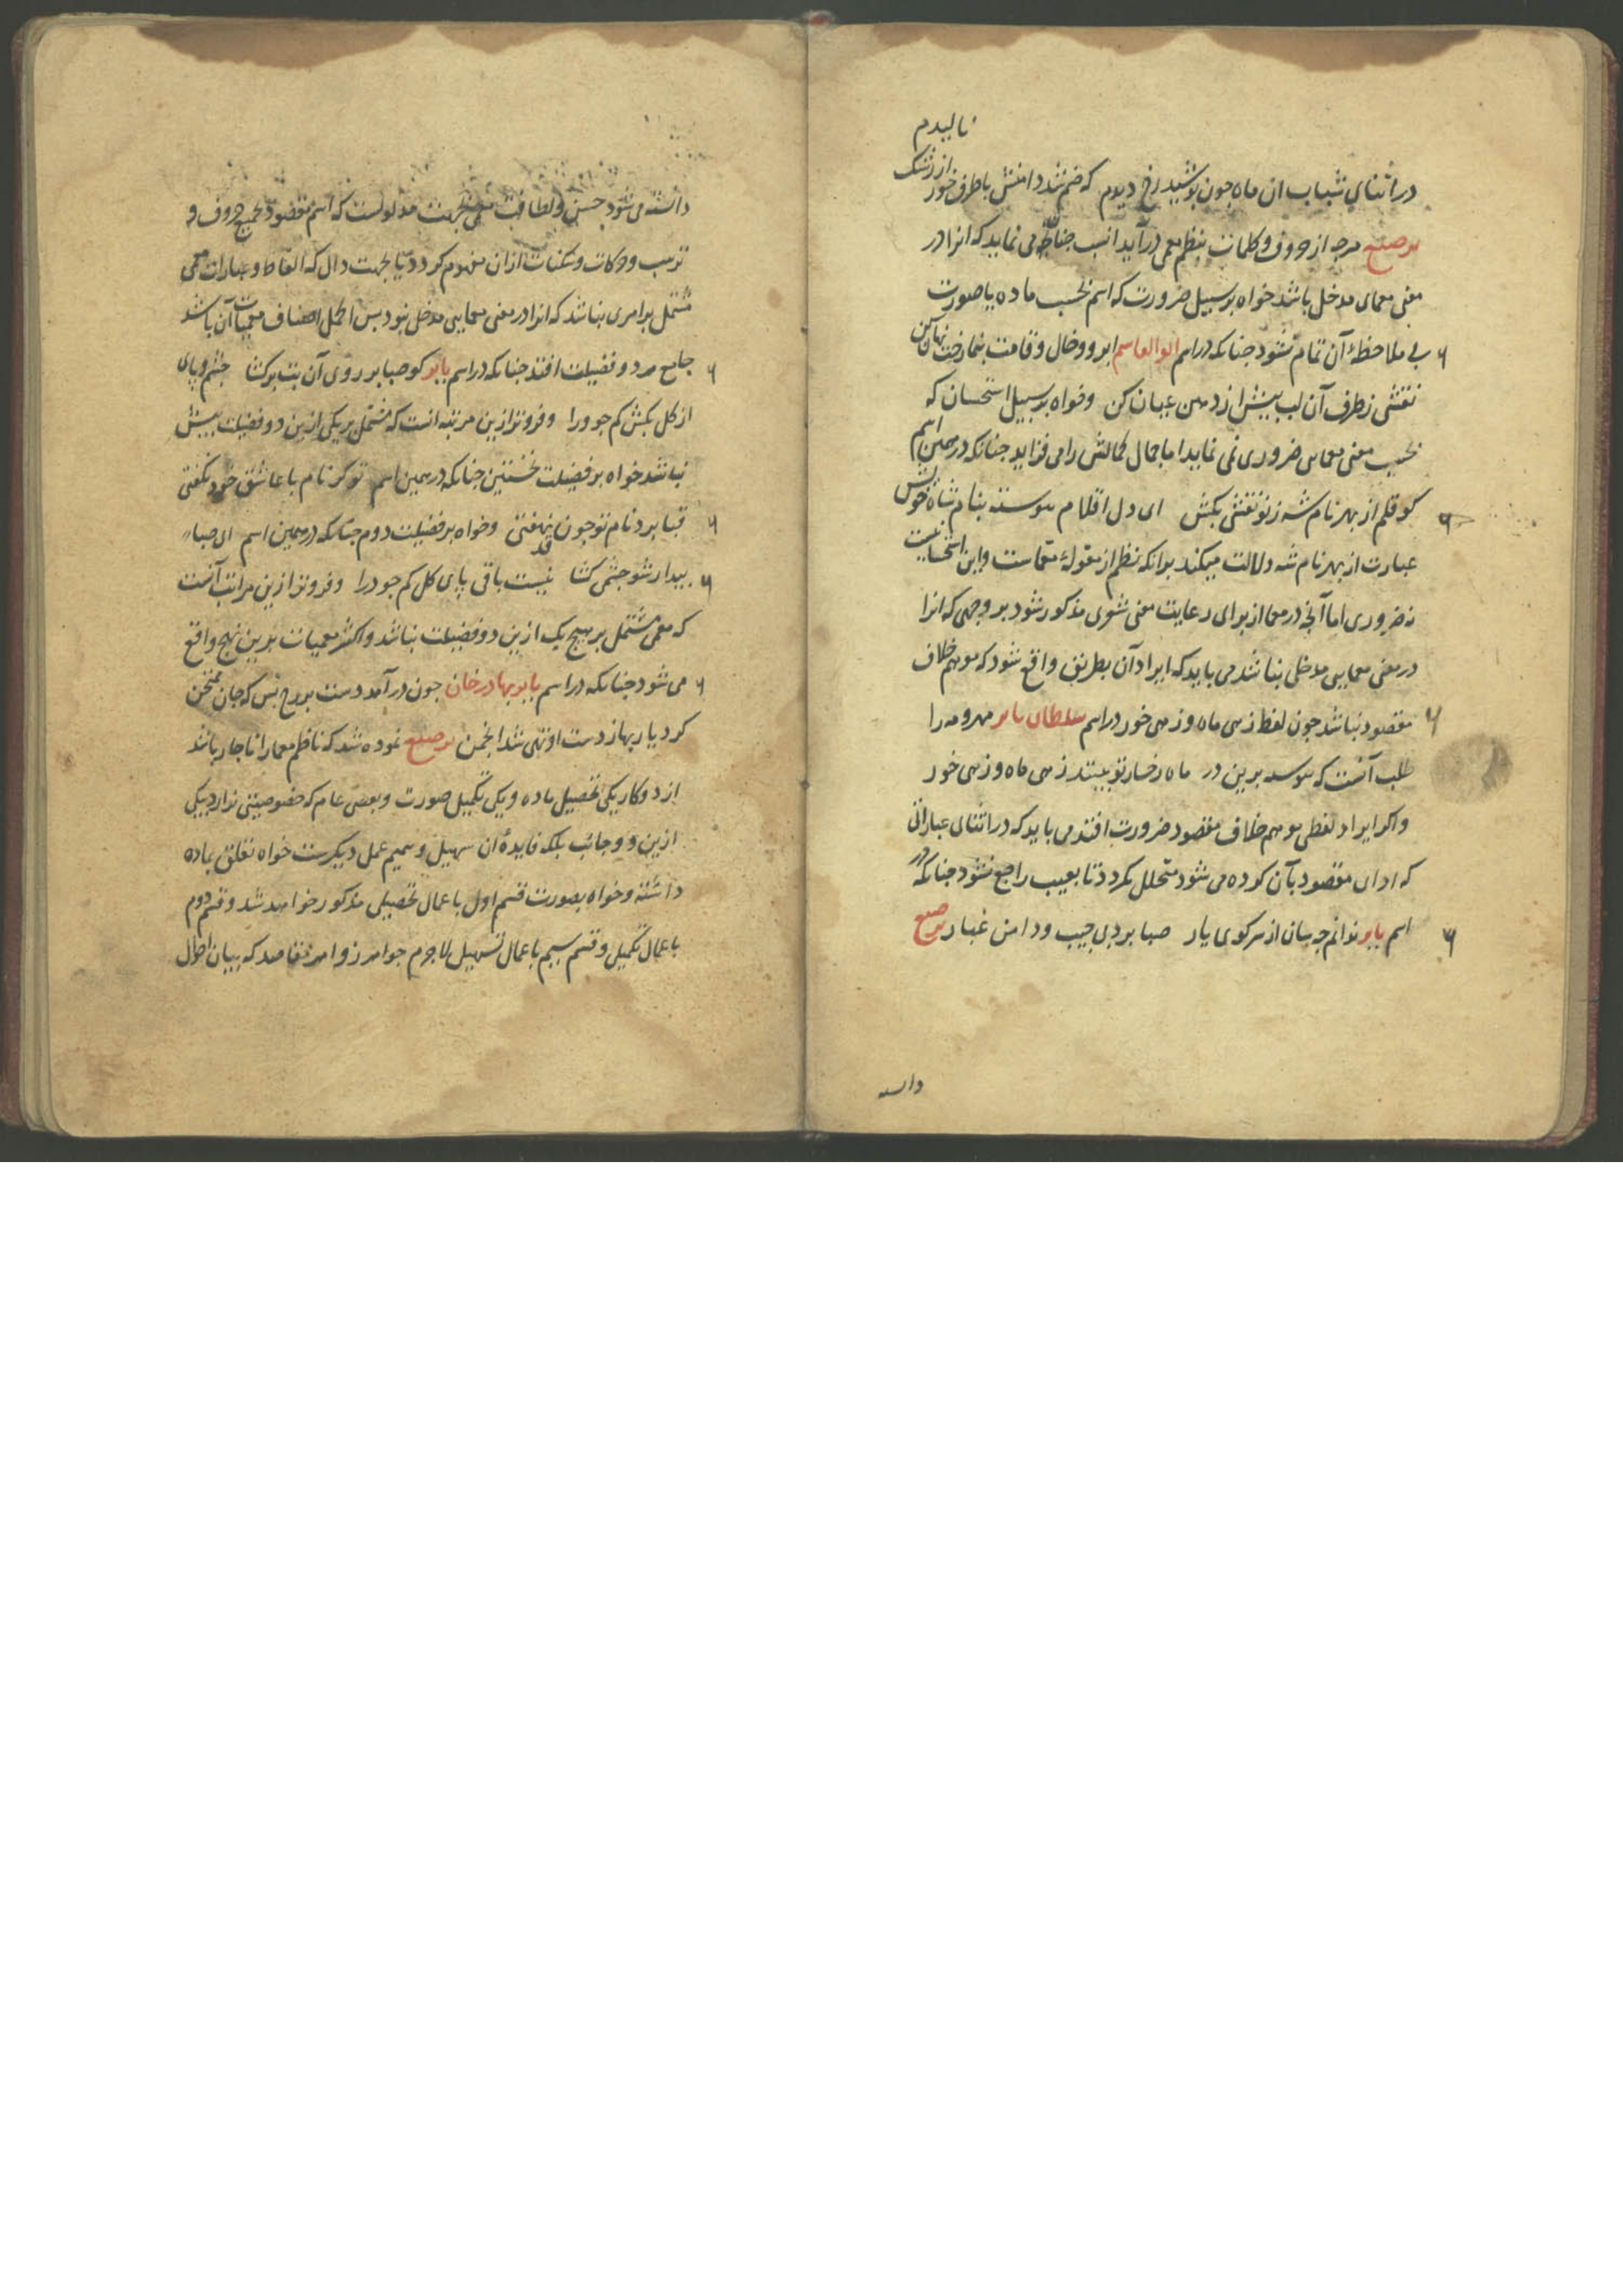 نالیدم
در اثنای شباب ان ماه چون پوشید رخ دیدم که ضم شد دامنش با طرف خور از رشک
ترصیع هرچه از حروف و کلمات بنظم معمی درآید انسب چنان می نماید که انرا در
معنی معمای مدخل باشد خواه بر سبیل ضرورت که اسم بحسب ماده یا صورت
بی ملاحظهٔ آن تمام نشود جنانکه در اسم ابوالقاسم ابرو و خال و قامت بنما رخت نهان کن
نقشی ز طرف آن لب بیش از دهن عیان کن وخواه بر سبیل استحسان که
بحسب معنی معمایی ضروری نمی نماید اما جمال کمالش را می فزاید جنانکه در همین اسم
کو قلم از بهر نام شه ز نو نقشی بکش ای دل اقلام پیوسته بنام شاه خوش
عبارت از بهر نام شه دلالت میکند برانکه نظم از مقولهٔ معماست واین استحسانیست
نه ضروری اما آنچه در معما از برای رعایت معنی شعری مذکور شود بر وجهی که انرا
در معنی معمایی مدخلی نباشد می باید که ایراد آن بطریق واقع شود که موهم خلاف
مقصود نباشد چون لفظ زهی ماه و زهی خور در اسم سلطان بابر مهر و مه را
طلب آنست که پیوسته برین در ماه رخسار تو بینند زهی ماه و زهی خور
واکر ایراد لفظی موهم خلاف مقصود ضرورت افتد می باید که در اثنای عباراتی
که ادای مقصود بآن کرده می شود متخلل نکردد تا بعیب راجع نشود جنانکه در
اسم بابر ندانم چه سان از سر کوی یار صبا برد بی جیب و دامن غبار ترصیع
دانسته
دانسته می شود حسن ولطافت معمی بجهت مدلولست که اسم مقصود بجمیع حروف و
ترتیب و حرکات و سکنات ازان مفهوم کردد یا بجهت دال که الفاظ و عبارات معمی
مشتمل بر امری نباشد که انرا در معنی معمایی مدخل نبود بس اکمل اصناف معمیات آن باشد
جامع هر دو فضیلت افتد جنانکه در اسم بابر کو صبا بر روی آن بت برکشا چشم و پای
از کل بکش کم جو ورا وفروتر ازین مرتبه انست که مشتمل بر یکی ازین دو فضیلت بیش
نباشد خواه بر فضیلت نخستین جنانکه درهمین اسم تو کر نام با عاشق خود نکفتی
قبا برد نام تو چون نهفتی وخواه بر فضیلت دوم جنانکه درهمین اسم ای صبا
بیدار شو چشمی کشا نیست باقی پای کل کم جو درا وفروتر ازین مراتب آنست
که معمی مشتمل بر هیچ یک ازین دو فضیلت نباشد واکثر معمیات برین نهج واقع
می شود جنانکه در اسم بابر بهادر خان چون در آمد دست بر رخ بس که جان ممتحن
کرد یاریها ز دست او تهی شد انجمن ترصیع نموده شد که ناظم معما را ناچار باشد
از دو کار یکی تحصیل ماده و یکی تکمیل صورت وبعضی عام که خصوصیتی ندارد بیکی
ازین دو جانب بلکه فایدهٔ ان تسهیل و تتمیم عمل دیکرست خواه تعلق بماده
داشته وخواه بصورت قسم اول باعمال تحصیلی مذکور خواهد شد وقسم دوم
باعمال تکمیلی وقسم سیم باعمال تسهیلی لاجرم جواهر زواهر مقاصد که ببیان احوال